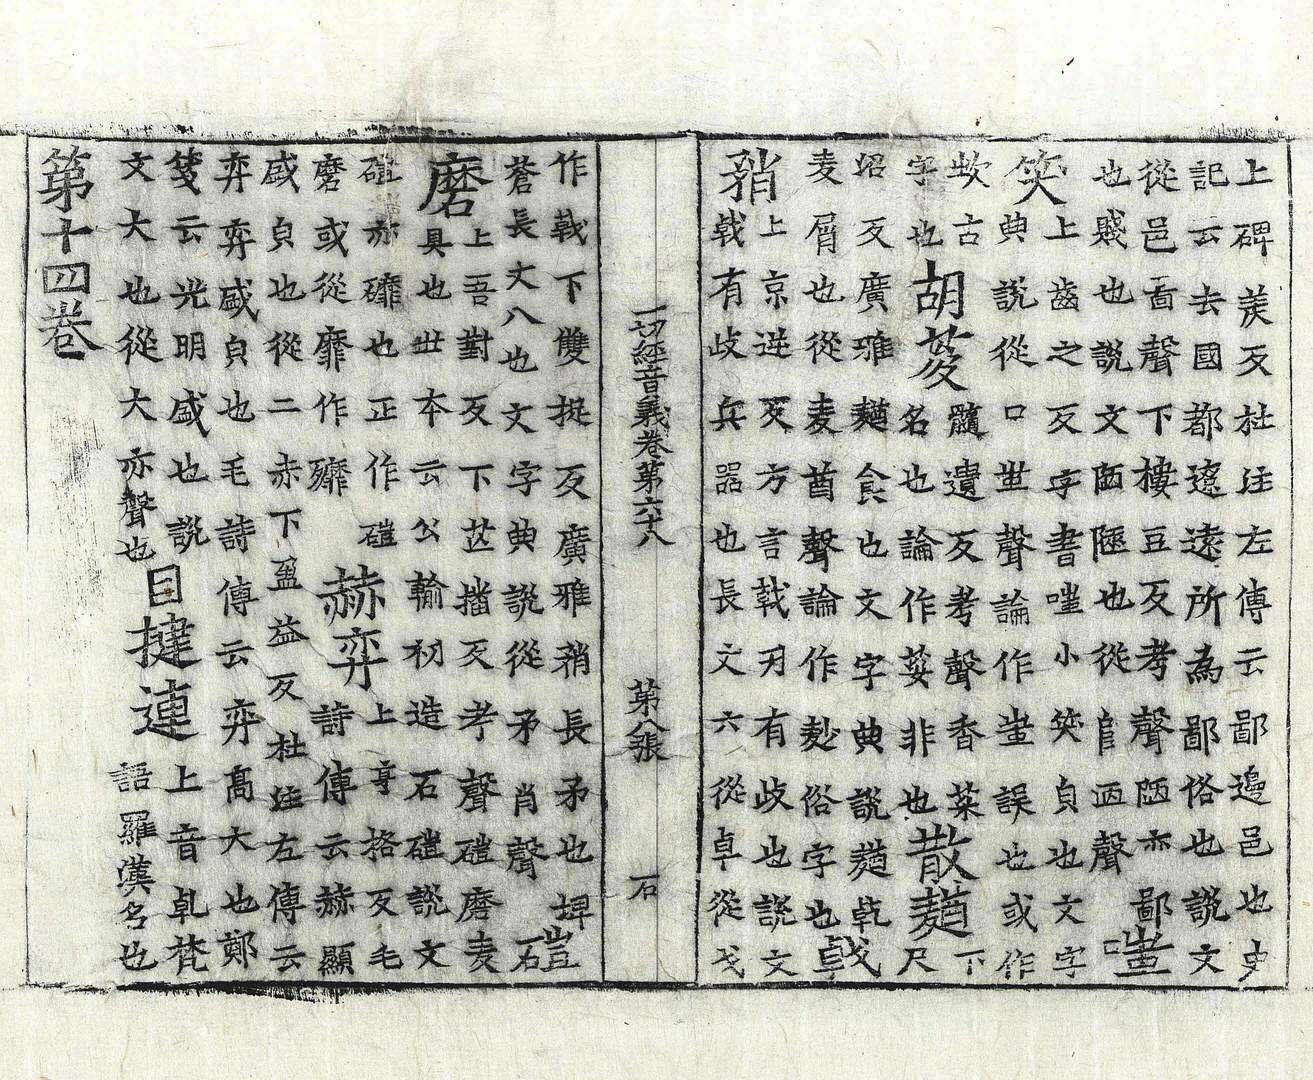 上碑羙反杜注左傳云鄙邊邑也史
記云去國都遼遠所為鄙俗也說文
從邑啚聲下樓豆反考聲陋亦鄙
也賤也說文陋陿也從𨸏㔷聲
嗤
笑
上齒之反字書嗤小笑皃也文字
典說從口蚩聲論作蚩誤也或作
㰞古
字也
胡荾
髓遺反考聲香菜
名也論作荽非也
散麨
下
尺
昭反廣雅麨食也文字典說麨乹
麦屑也從麦酋聲論作麨俗字也
戟
矟
上京逆反方言戟刃有歧也說文
戟有歧兵器也長丈六從卓從戈
一切經音義卷第六十八 第八張 石
作戟下雙捉反廣雅矟長矛也埤
蒼長丈八也文字典說從矛肖聲
磑
磨
上吾對反下芒播反考聲磑磨麦
具也世本云公輸初造石磑說文
磑亦䃺也正作磑
磨或從靡作䃺
赫弈
上亨格反毛
詩傳云赫顯
盛皃也從二赤下盈益反杜注左傳云
弈弈盛皃也毛詩傳云弈高大也鄭
箋云光明盛也說
文大也從大亦聲也
目揵連
上音乹梵
語羅漢名也
第十四卷